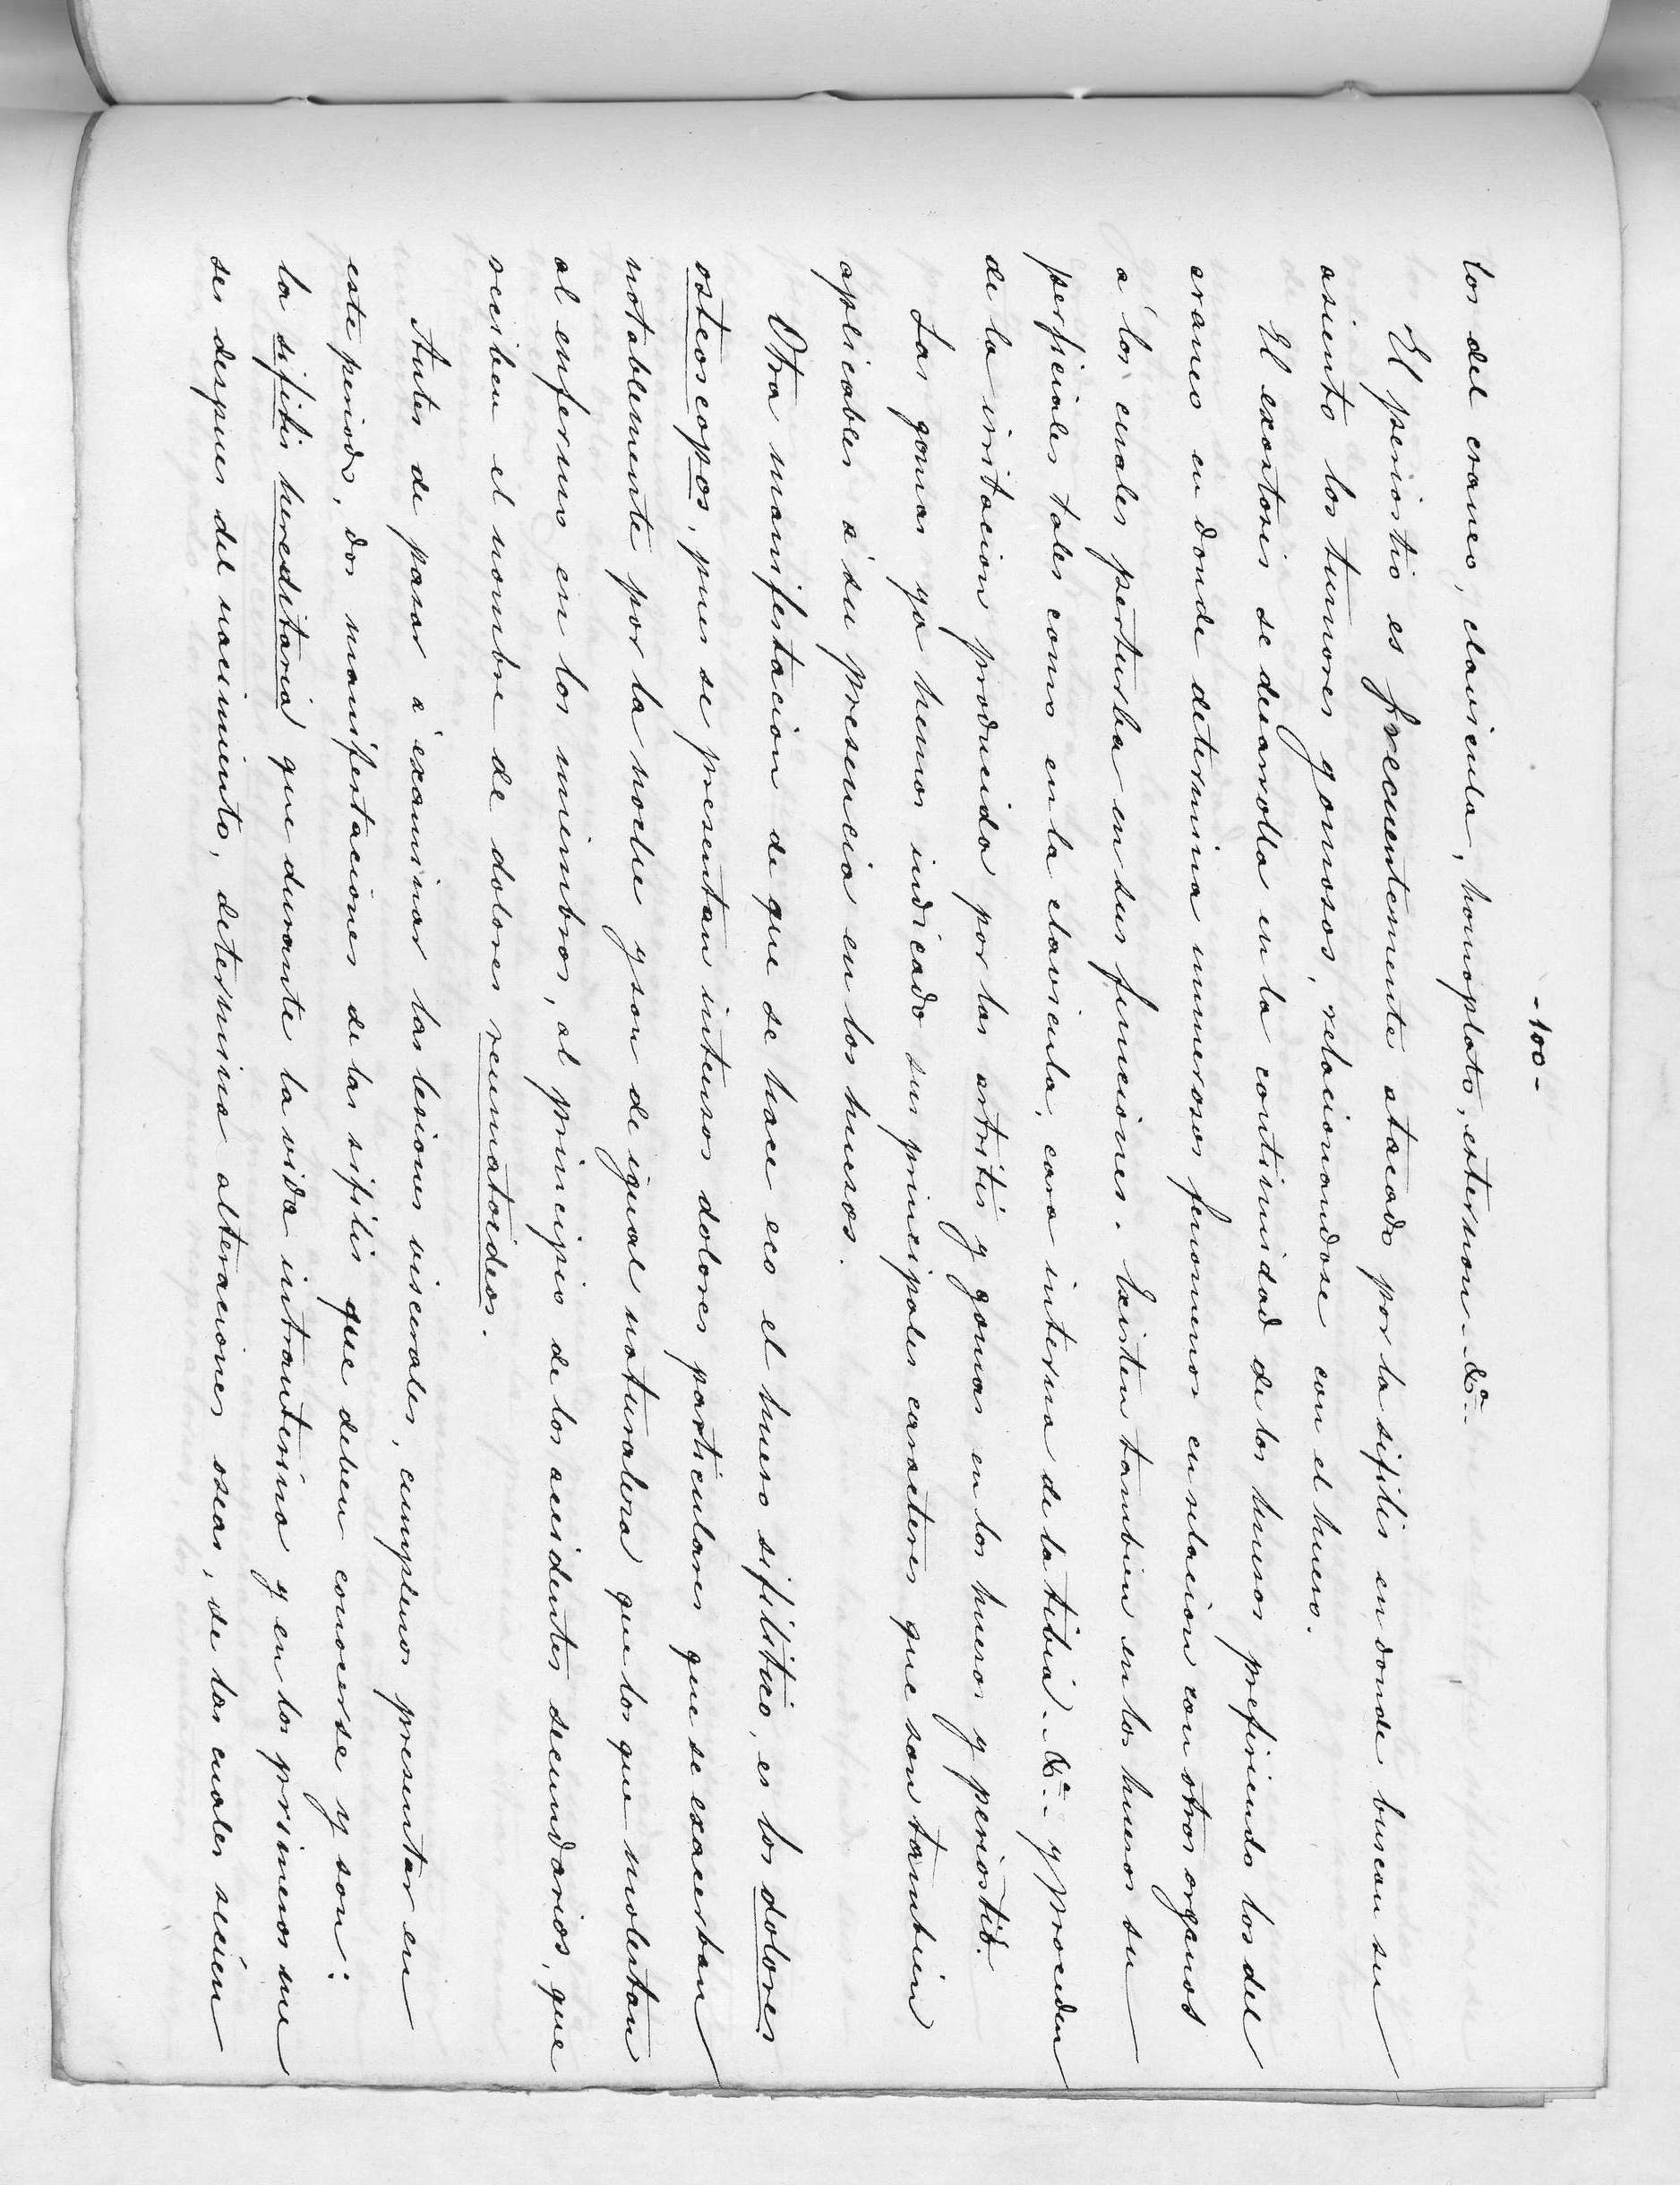 -100-
los del craneo, clavicula, homoplato, esternon &ª.
El periostio es frecuentemente atacado por la sifilis en donde buscan su
asiento los tumores gomosos, relacionandose con el hueso.
El exostosis se desarrolla en la continuidad de los huesos prefiriendo los del
craneo en donde determina numerosos fenomenos en relacion con otros organos
á los cuales perturba en sus funciones. Existen tambien en los huesos su
perficiales tales como en la clavicula, cara interna de la tibia &ª. y proceden
de la irritacion producida por las artritis y gomas en los huesos y periostio.
Las gomas ya hemos indicado sus principales caracteres que son tambien
aplicables á su presencia en los huesos.
Otra manifestacion de que se hace eco el hueso sifilitico, es los dolores
osteoscopos, pues se presentan intensos dolores particulares que se exacerban
notablemente por la noche y son de igual naturaleza que los que molestan
al enfermo en los miembros, al principio de los accidentes secundarios, que
reciben el nombre de dolores reumatoideos.
Antes de pasar á examinar las lesiones viscerales, cumplenos presentar en
este periodo, dos manifestaciones de las sifilis que deben conocerse y son:
la sifilis hereditaria que durante la vida intrauterina y en los primeros me
ses despues del nacimiento, determina alteraciones oseas, de las cuales recien